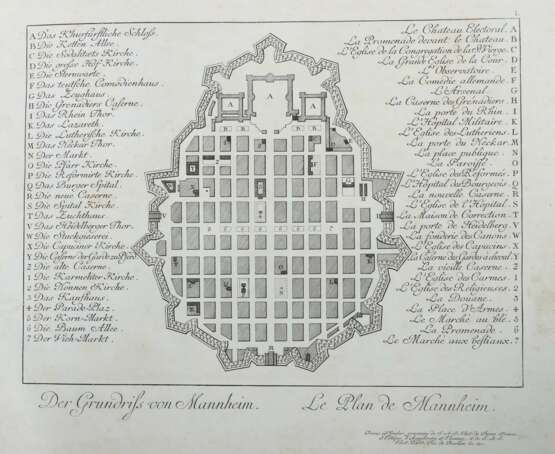 A Das Churfürstliche Schloß.
B Die Ketten Allee.
C Die Sodalitets Kirche.
D Die große Hof-Kirche.
E Die Sternwarte.
F Das teutsche Comödienhaus.
G Das Zeughaus.
H Die Grenadiers Caserne.
I Das Rhein Thor.
K Das Lazareth.
L Die Lutherische Kirche.
M Das Neckar Thor.
N Der Markt.
O Die Pfarr Kirche.
P Die Reformirte Kirche.
Q Das Burger Spital.
R Die neue Caserne.
S Die Spital Kirche.
T Das Zuchthaus
V Das Heidelberger Thor.
W Die Stuckgiesserei.
X Die Capuciner Kirche.
Y Die Caserne der Garde zu Pferd
Z Die alte Caserne.
1 Die Karmeliter Kirche.
2 Die Nonnen Kirche.
3 Das Kaufhaus.
4 Der Parade-Plaz.
5 Der Korn-Markt.
6 Die Baum Allee.
7 Der Vieh-Markt.
Le Chateau Electoral. A
La Promenade devant le Chateau. B
L'Eglise de la Congregation de la Ste Vierge. C
La Grande Eglise de la Cour. D
L'Observatoire. E
La Comédie allemande. F
L'Arsenal. G
La Caserne des Grenadiers. H
La porte du Rhin. I
L'Hôpital Militaire. K
L'Eglise des Lutheriens. L
La porte du Neckar. M
La place publique. N
La Paroisse. O
L'Eglise des Reformés. P
L'Hôpital des Bourgeois. Q
La nouvelle Caserne. R
L'Eglise de l'Hôpital. S
La Maison de Correction. T
La porte de Heidelberg. V
La fonderie des Canons. W
L'Eglise des Capucins. X
La Caserne des Gardes à cheval. Y
La vieille Caserne. Z
L'Eglise des Carmes. 1
L'Eglise des Religieuses. 2
La Douane. 3
La Place d'Armes. 4
Le Marché au blé. 5
La Promenade. 6
Le Marché aux bestiaux. 7
Der Grundriss von Mannheim.
Le Plan de Mannheim.